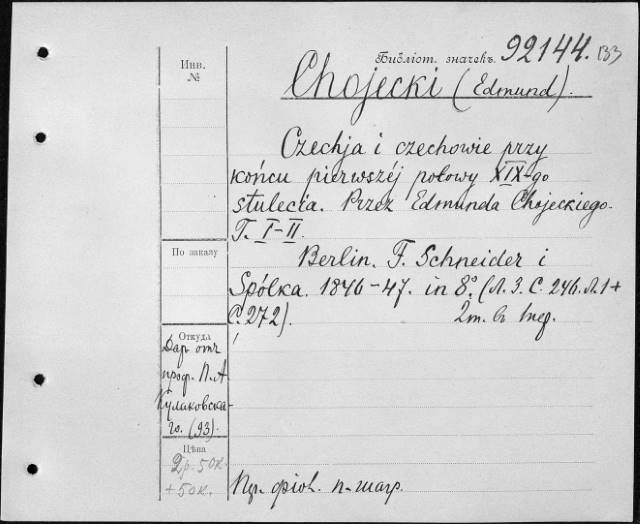 Библіот. значекъ 92144. 133
Инв.
№
Chojecki (Edmund).
Czechja i czechowie przy
końcu pierwszéj połowy XIX-go
stulecia. Przez Edmunda Chojeckiego.
T. I-II.
По заказу
Berlin. F. Schneider i
Spólka. 1846-47. in 8°. (Л. З. С. 246. Л. 1+
С. 272).
2т. въ 1
Откуда
Даръ отъ
проф. П. А.
Кулаковска-
го. (93).
Цѣна
2р. 50к.
+50к.